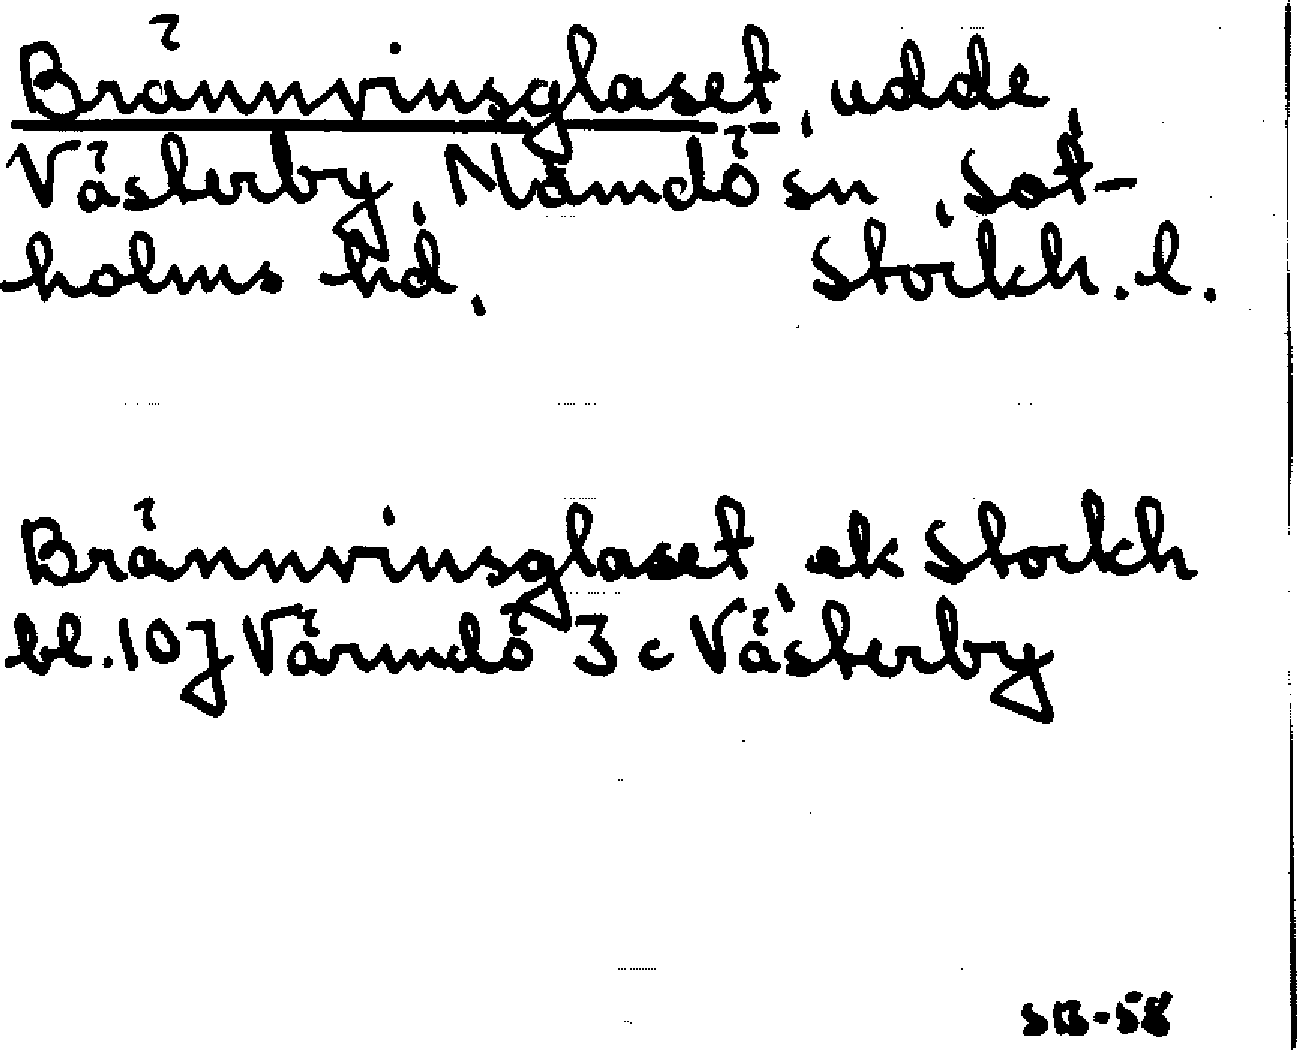 Brännvinsglaset, udde,
Västerby, Nämdö sn, Sot-
holms hd, Stockh. l.
Brännvinsglaset, ek Stockh
bl. 107 Värmdö 3 c Västerby
SB-58